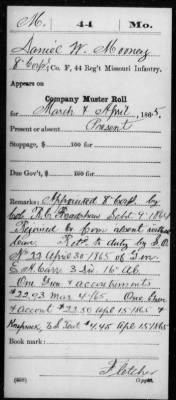 M. 44 Mo.
Daniel W. Mooney
8" Corp'l Co. F, 44 Reg't Missouri Infantry.
Appears on
Company Muster Roll
for March & April, 1865.
Present or absent Present
Stoppage, $ 100 for
Due Gov't, $ 100 for
Remarks: Appointed 8" Corp. by
Col. R. C. Bradshaw Sept. 9. 1864
Rejoined by from absent without
leave. Ret'd to duty by S.O.
No 22 April 30/1865 of
E. A. Carr 3 Div 16" A.C.
One Gun & accoutrements
$22.93 Mar 4/65. One Gun
& accout $23.50 Apr 15 1865 &
Knapsack, $4.45 Apr 15 1865
Book mark:
Fletcher
(358) Copyist.